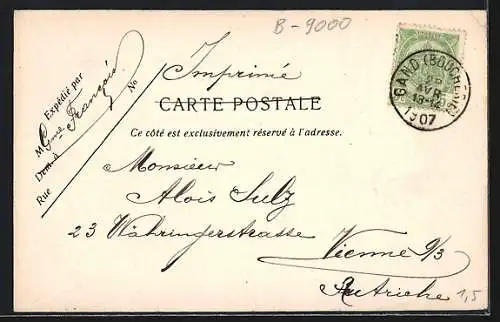 B-9000
Imprimé
Expédié par
M Gme François
Dem. à
Rue
No
CARTE POSTALE
Ce côté est exclusivement réservé à l'adresse.
GAND (BOUCHERIE)
AVR
1907
Monsieur
Alois Sulz
23 Währingerstrasse
Vienne 9/3
Autriche
1,5